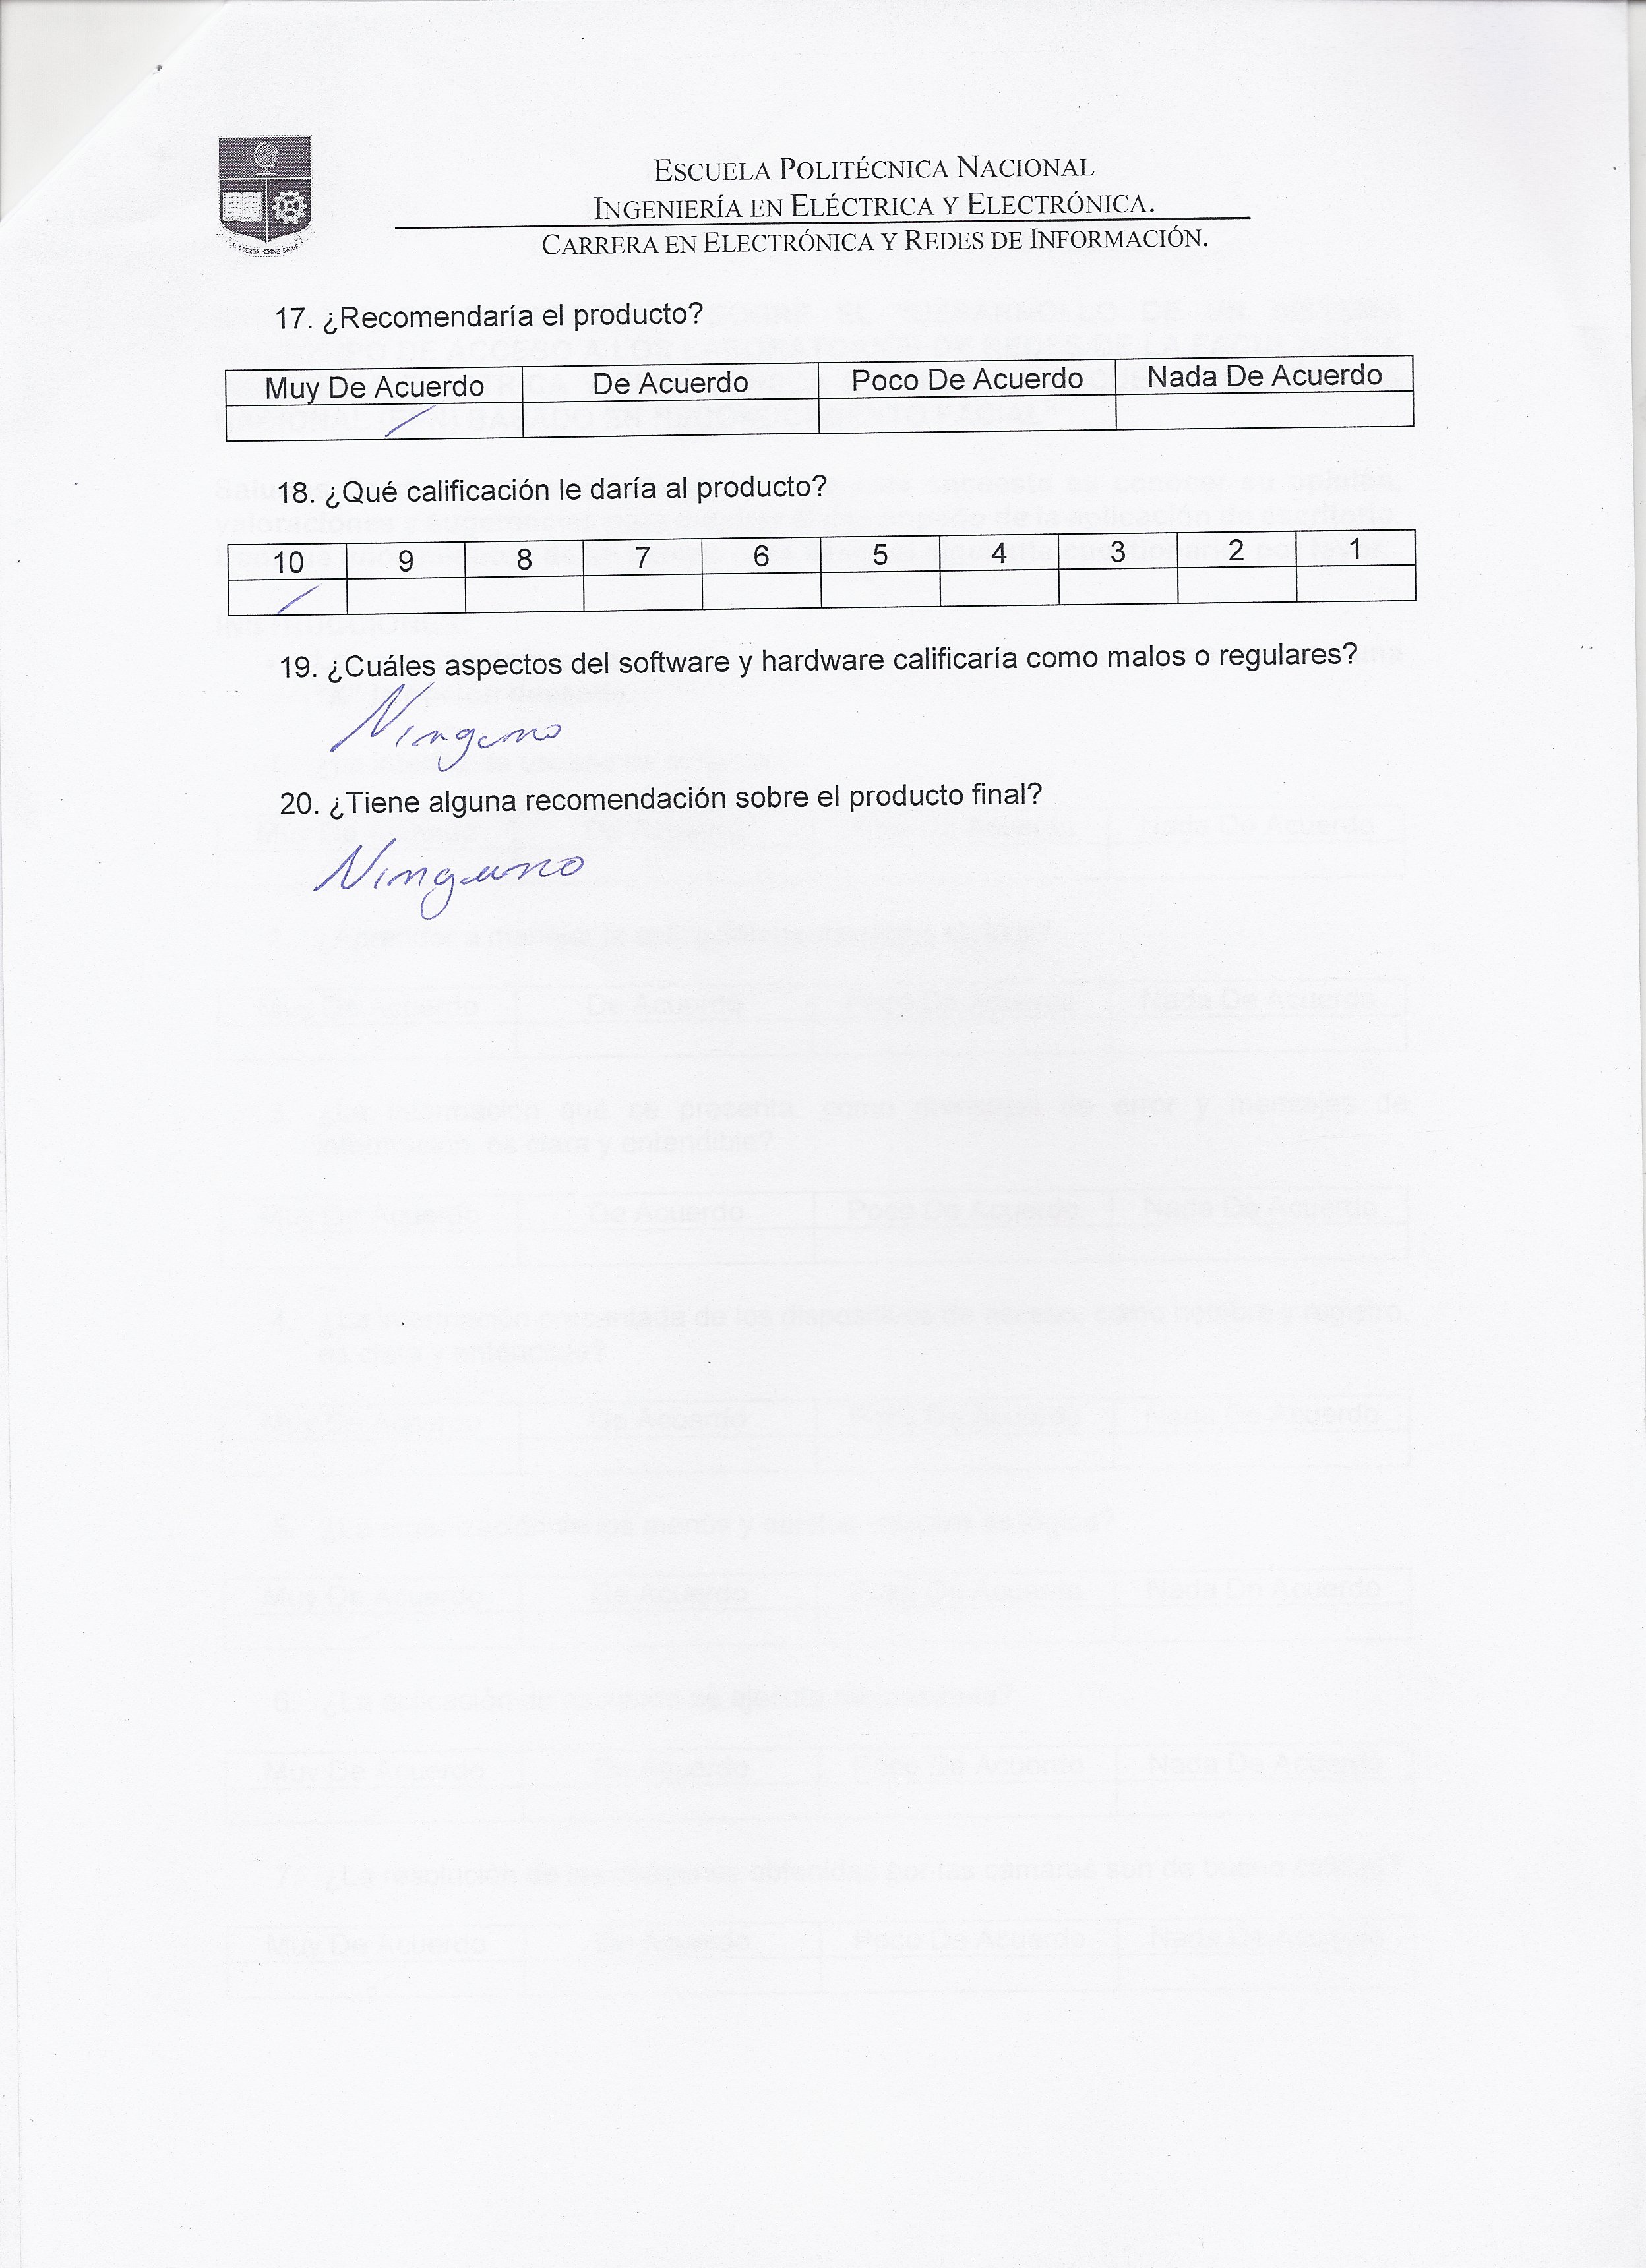 ESCUELA POLITÉCNICA NACIONAL
INGENIERÍA EN ELÉCTRICA Y ELECTRÓNICA.
CARRERA EN ELECTRÓNICA Y REDES DE INFORMACIÓN.
17. ¿Recomendaría el producto?
Muy De Acuerdo De Acuerdo Poco De Acuerdo Nada De Acuerdo
18. ¿Qué calificación le daría al producto?
10 9 8 7 6 5 4 3 2 1
19. ¿Cuáles aspectos del software y hardware calificaría como malos o regulares?
Ninguno
20. ¿Tiene alguna recomendación sobre el producto final?
Ninguno